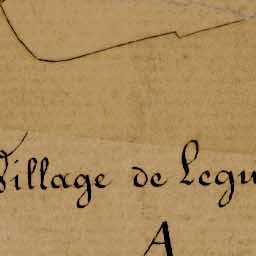 Village de Legu
A